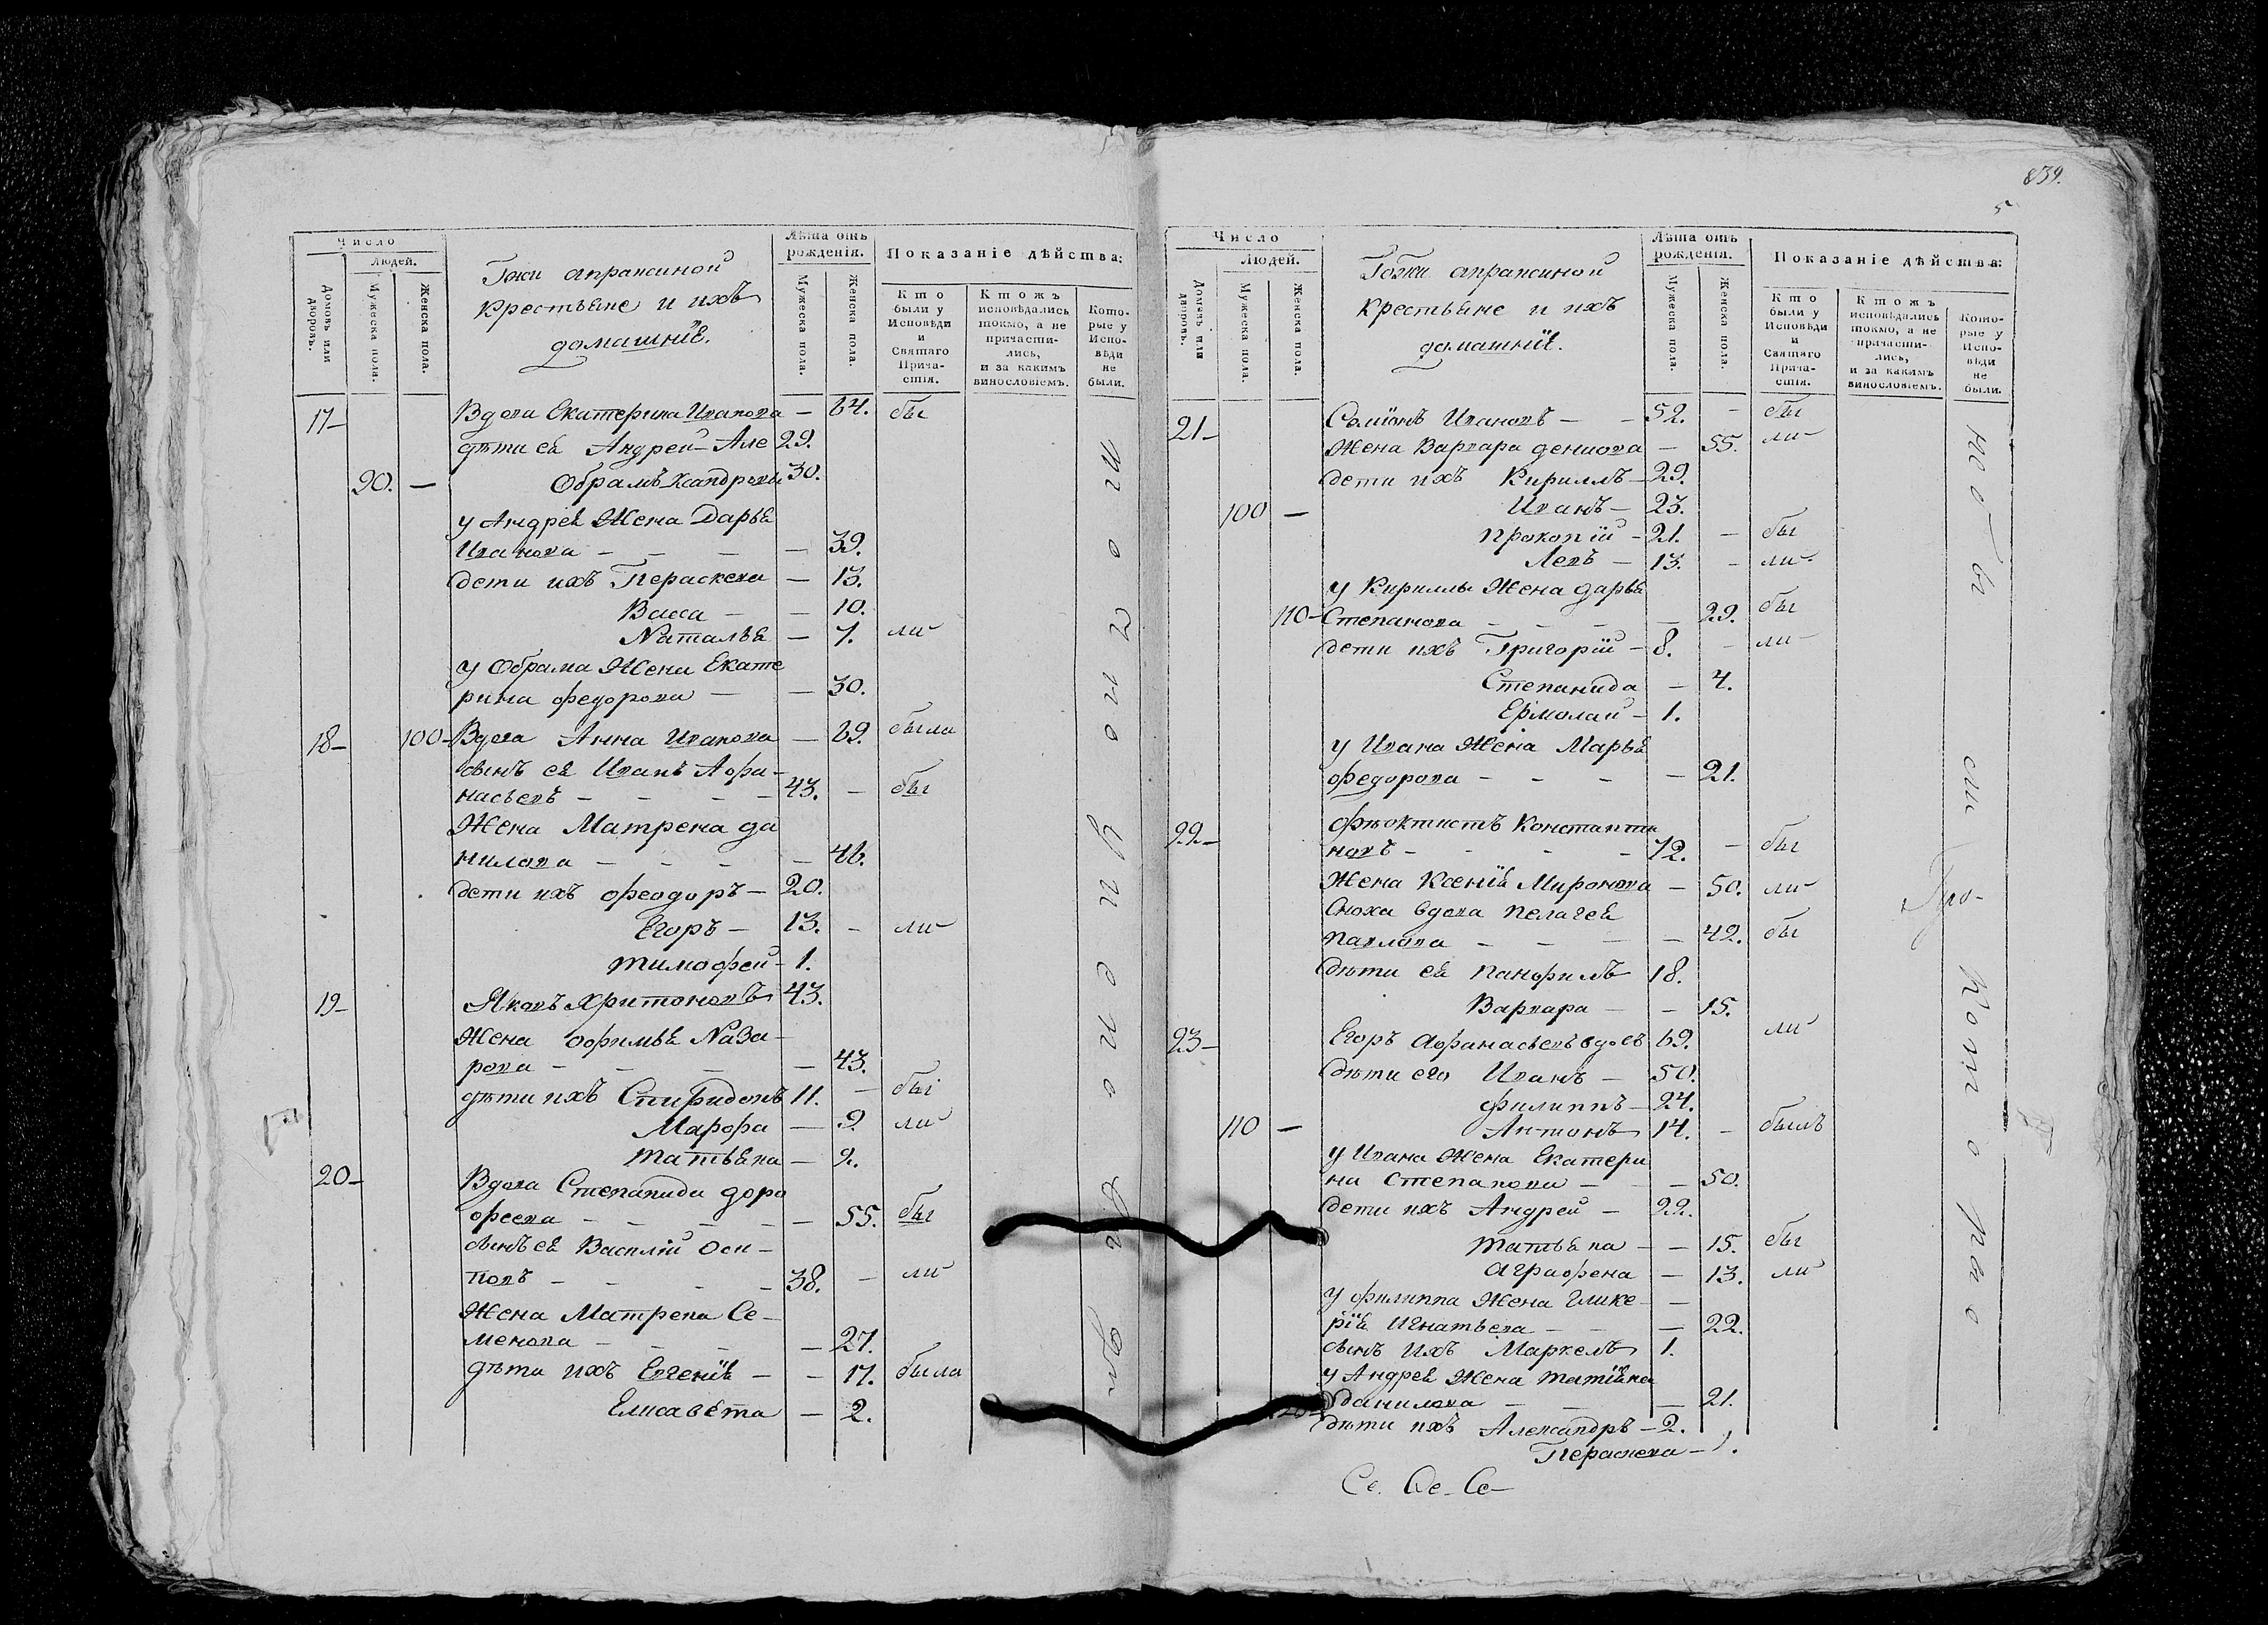 839.
5
Число
Людей.
Домовъ или дворовъ.
Мужеска пола.
Женска пола.
Гжи апраксиной
крестьяне и ихъ
домашнїе.
Лѣта отъ рожденія.
Мужеска пола.
Женска пола.
Показаніе дѣйства:
Кто были у Исповѣди и Святаго Причастія.
Ктожъ исповѣдались токмо, а не причастились, и за какимъ винословіемъ.
Которые у Исповѣди не были.
17- Вдова Екатерина Иванова - 64. бы
дѣти ея Андрей - Але 29.
90. - Обрамъ ксандровы 30.
у Андрея Жена Дарья
Иванова - - - - 39.
дети ихъ Пераскева - 13.
Васса - - 10.
Наталья - 7. ли
у Обрама Жена Екате
рина федорова - - 30.
18- 100- Вдова Анна Иванова - 69. была
сынъ ея Иванъ Афа-
насьевъ - - - - 43. - бы
Жена Матрена да
нилова - - - - 46.
дети ихъ феодоръ - 20.
Егоръ - 13. - ли
тимофей - 1.
19- Яковъ Хритоновъ 43.
Жена Офимья Наза-
рова - - - - 43.
дѣти ихъ Спиридонъ 11. - бы
Марфа - 9. ли
татьяна - 2.
20- Вдова Степанида доро
феева - - - - 55. бы
сынъ ея Василій Оси-
повъ - - - - 38. - ли
Жена Матрена Се-
менова - - - - 27.
дѣти ихъ Евгенїя - - 17. была
Елисавета - 2.
Число
Людей.
Домовъ или дворовъ.
Мужеска пола.
Женска пола.
Гожи апраксиной
крестьяне и ихъ
домашнїе.
Лѣта отъ рожденія.
Мужеска пола.
Женска пола.
Показаніе дѣйства:
Кто были у Исповѣди и Святаго Причастія.
Ктожъ исповѣдались токмо, а не причастились, и за какимъ винословіемъ.
Которые у Исповѣди не были.
21- Семїонъ Ивановъ - - 52. - бы
Жена Варвара денисова - 55. ли
дети ихъ Кириллъ - 29.
100 - Иванъ - 23.
Прокопїй - 21. - бы
Левъ - 13. - ли
у Кириллы Жена дарья
110- Степанова - - - - 29. бы
дети ихъ Григорїй - 8. - ли
Степанида - 4.
Ермолай - 1.
у Ивана Жена Марья
федорова - - - - 21.
22- феоктистъ Константи
новъ - - - - 72. - бы
Жена Ксенїя Миронова - 50. ли
Сноха вдова пелагея
павлова - - - - 42. бы
дѣти ея панфилъ 18.
Варвара - - 15.
23- Егоръ афанасьевъ вдовъ 69. ли
дѣти его Иванъ - 50.
филиппъ - 24.
110 - Антонъ 14. - былъ
у Ивана Жена Екатери
на степанова - - 50.
дети ихъ Андрей - 22.
татьяна - - 15. бы
аграфена - 13. ли
у филиппа Жена Глике -
рїя Игнатьева - - - 22.
сынъ ихъ Маркелъ 1.
у Андрея Жена татїяна
данилова - - - 21.
дѣти ихъ Александръ - 2.
Пераскева - 1.